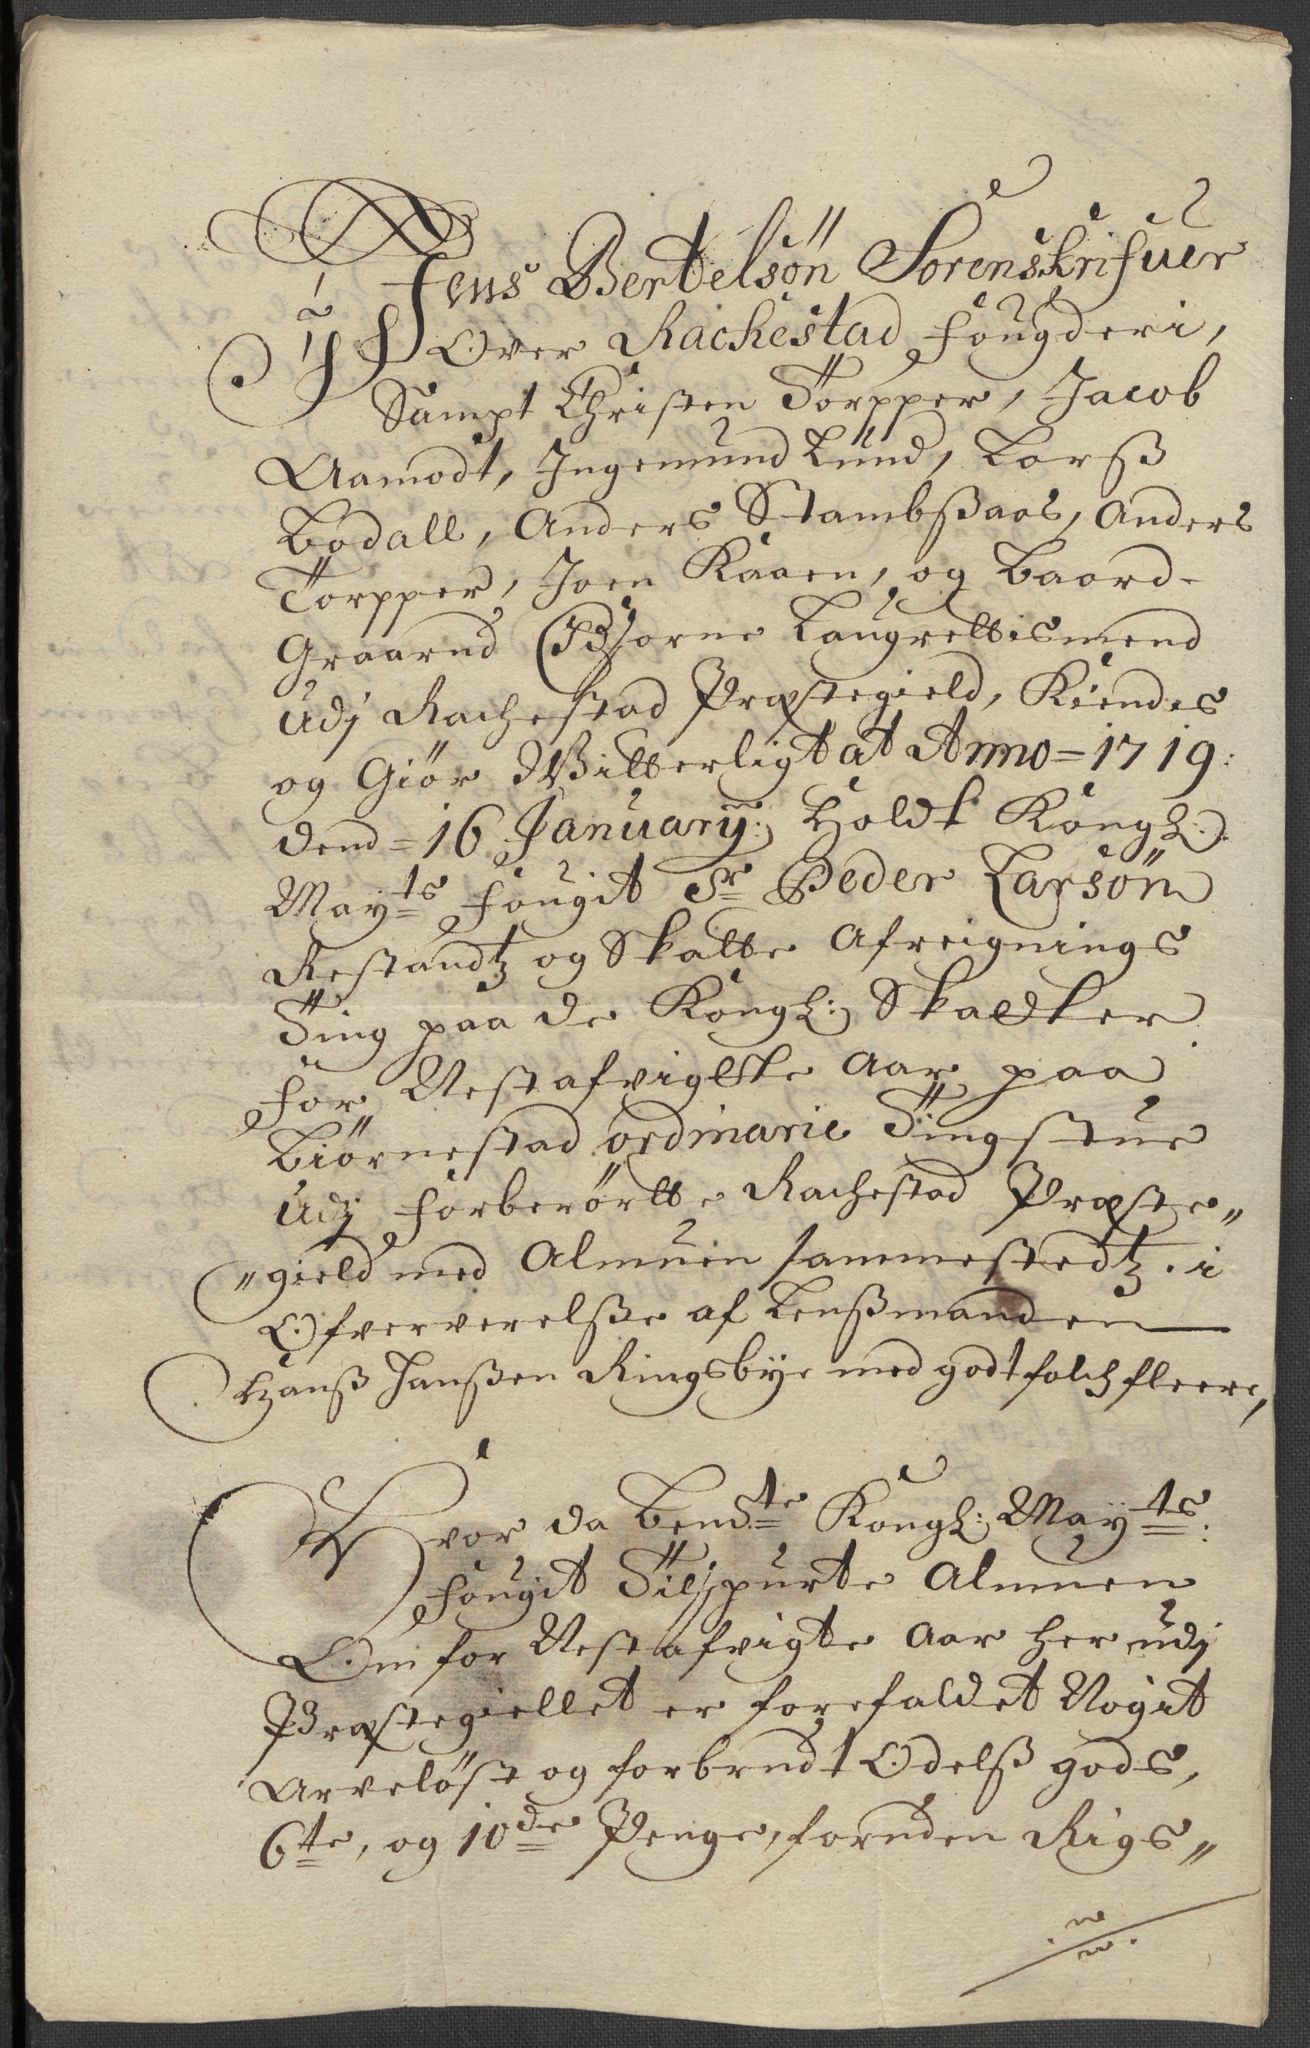 Jens Bertelsön Sorenskrifuer
Over Rachestad fougderi,
Sampt Christen Torpper, Jacob
Aamodt, Ingemund Lund, Larß
Bodall, Anders Stambßaas, Anders
Torpper, Joen Kaaen, og Baard
Graarud Svorne Laugrettismend
Udj Rachestad Præstegield, Kiendes
og Giör Witterligt at Anno = 1719:
dend = 16 Januarij: Holdt Kongl:
Mayts fougit Sr Peder Larsön
Restandtz og Skatte Afreignings
Ting paa de Kongl: Skatter
for Nestafvigte Aar paa
Biörnestad ordinarie Tingstue
Udj forberörtte Rachestad Præste„
„gield med Almuen sammestedtz. i
Ofververelße af Lenßmanden
Hanß Hanßen Ringsbye med godtfolch fleere,
Hvor da Bemte Kongl: Mayts:
fougit Tilspurte Almuen
Om for Nestafvigte Aar her udj
Præstegiellet er forefaldet Nogit
Arvelöst og forbrudt Odelß gods,
6te, og 10de Penge, foruden Rigs„